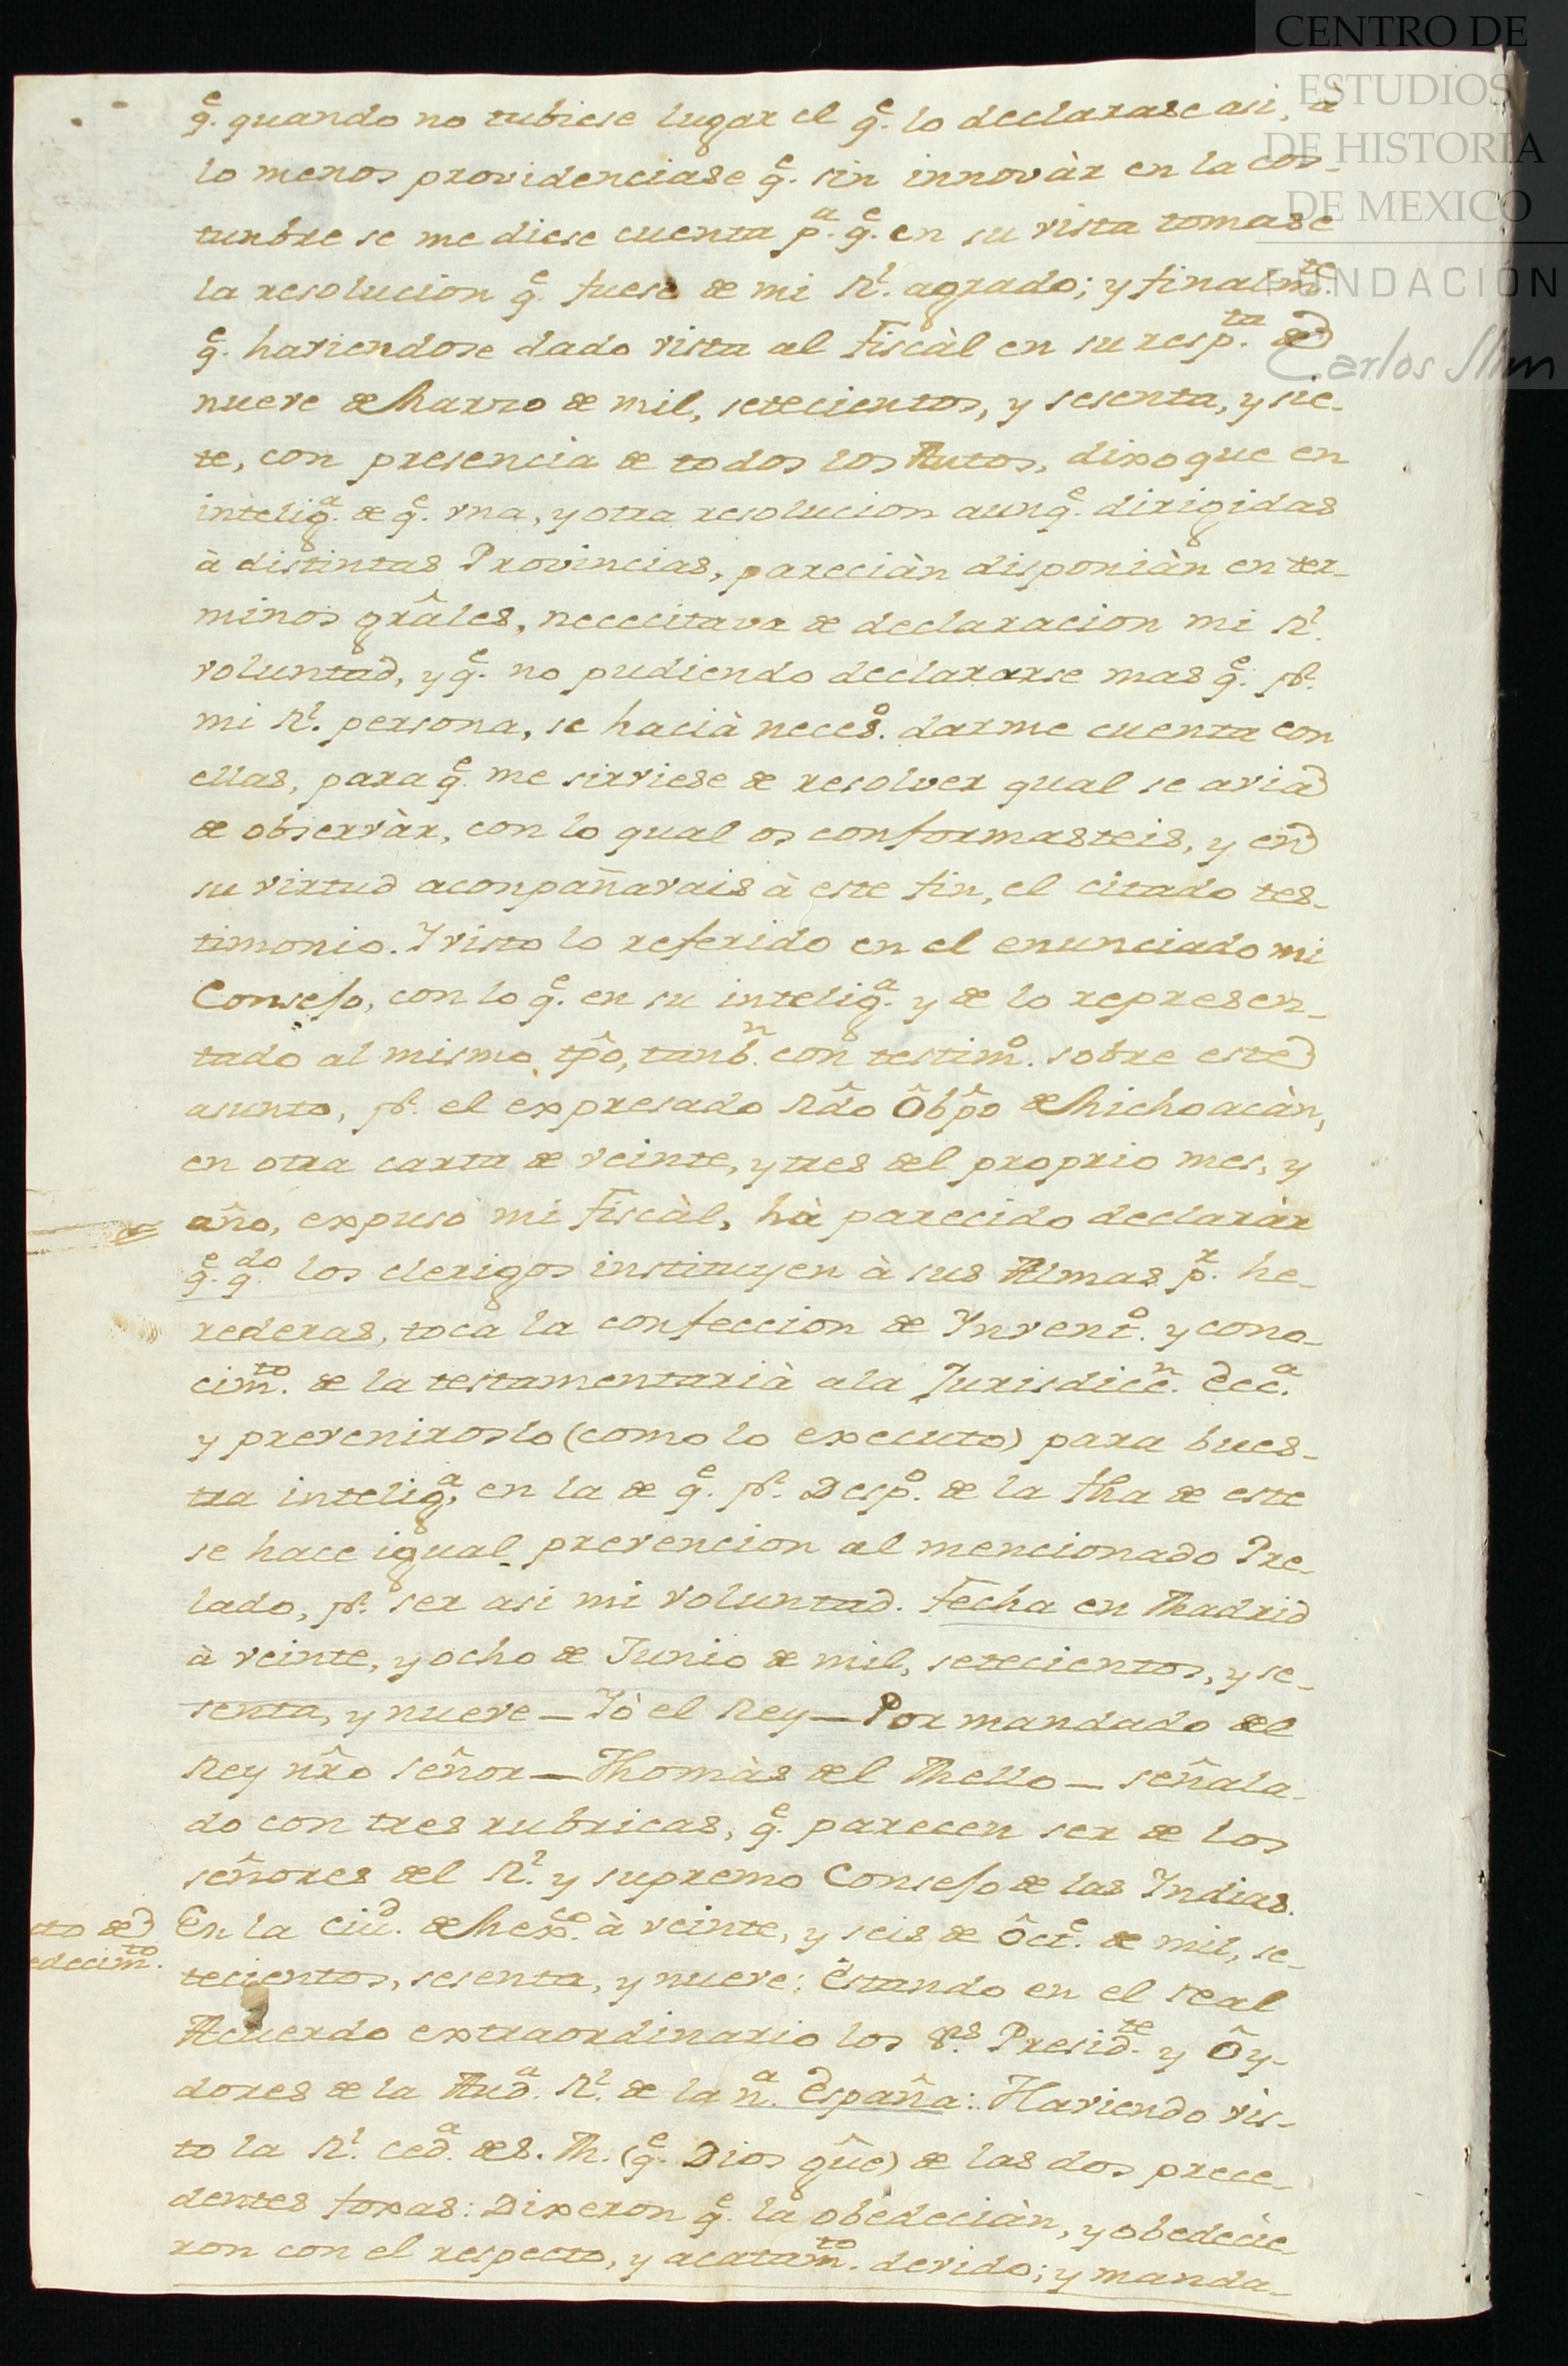 CENTRO DE
ESTUDIOS
DE HISTORIA
DE MEXICO
FUNDACIÓN
Carlos Slim
q.e quando no tubiese lugar el q.e lo declarase asi, a
lo menos providenciase q.e sin innovàr en la cos-
tunbre se me diese cuenta p.a q.e en su vista tomase
la resolucion q.e fuese de mi R.l agrado; y finalm.te
q.e haviendose dado vista al Fiscàl en su resp.ta de
nueve de Marzo de mil, setecientos, y sesenta, y sie-
te, con presencia de todos los Autos, dixo que en
intelig.a de q.e vna, y otra resolucion aunq.e dirigidas
à distintas Provincias, pareciàn disponiàn en ter-
minos grâles, nececitava de declaracion mi R.l
voluntad, y q.e no pudiendo declararse mas q.e p.r
mi R.l persona, se hacià neces.o darme cuenta con
ellas, para q.e me sirviese de resolver qual se avia
de observàr, con lo qual os conformasteis, y en
su virtud aconpañavais à este fin, el citado tes-
timonio. Y visto lo referido en el enunciado mi
Consejo, con lo q.e en su intelig.a y de lo represen-
tado al mismo tpô, tanb.n con testim.o sobre este
asunto, p.r el expresado Rdô Ôbpô de Michoacàn,
en otra carta de veinte, y tres del proprio mes, y
año, expuso mi Fiscàl, hà parecido declaràr
q.e q.do los clerigos instituyen à sus Almas p.r he-
rederas, toca la confeccion de Ynvent.o y cono-
cim.to de la testamentarià a la Jurisdicc.n Ecc.a
y preveniroslo (como lo executo) para bues-
tra intelig.a, en la de q.e p.r Desp.o de la fha de este
se hace igual prevencion al mencionado Pre-
lado, p.r ser asi mi voluntad. Fecha en Madrid
à veinte, y ocho de Junio de mil, setecientos, y se-
senta, y nueve — Yò el Rey — Por mandado del
Rey nrô señor — Thomàs del Mello — señala-
do con tres rubricas, q.e parecen ser de los
señores del R.l y supremo Consejo de las Indias.
cto de
edecim.to
En la ciu.d de Mex.co à veinte, y seis de Ôct.e de mil, se-
tecientos, sesenta, y nueve: Estando en el real
Acuerdo extraordinario los S.res Presid.te y Ôy-
dores de la Aud.a R.l de la n.a España: Haviendo vis-
to la R.l ced.a de S. M. (q.e Dios gûe) de las dos prece-
dentes foxas: Dixeron q.e la obedeciàn, y obedecie-
ron con el respecto, y acatam.to devido; y manda-